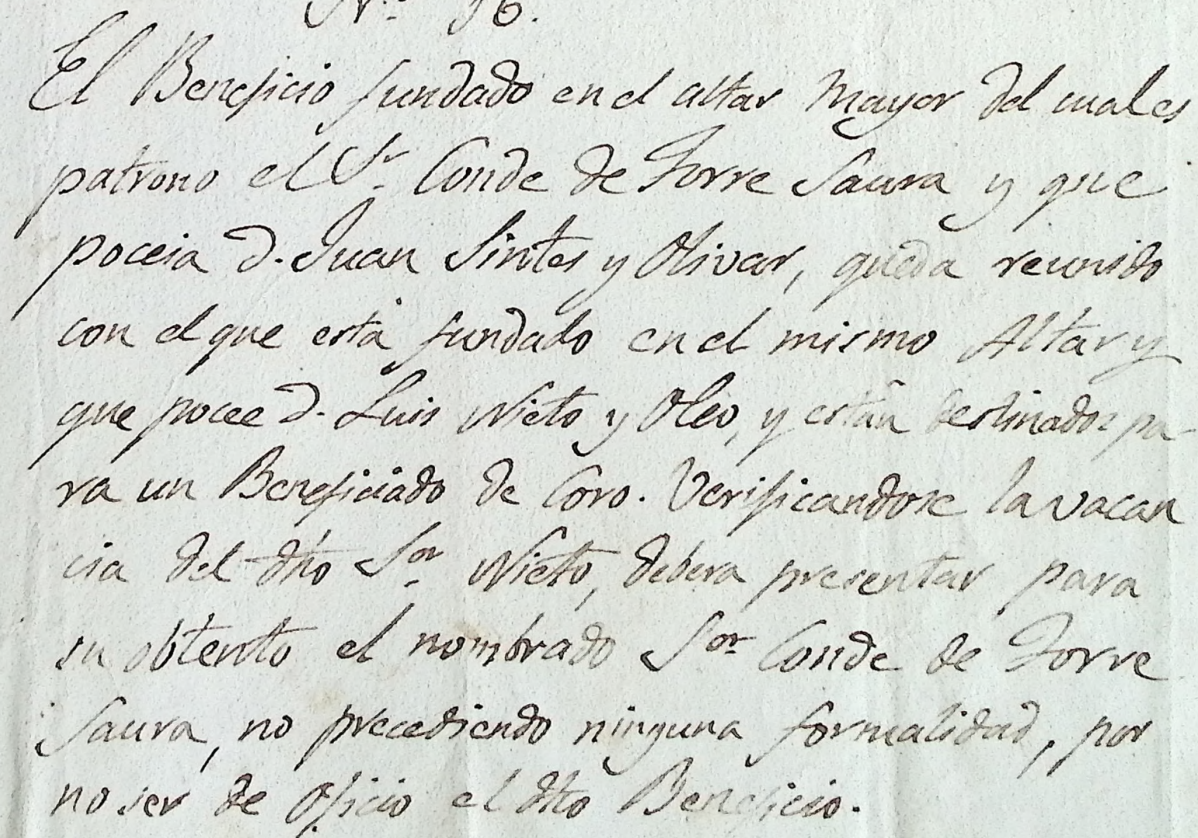 Nº 16.
El Beneficio fundado en el altar Mayor del cual es
patrono el Sr. Conde de Torre Saura y que
poceia D. Juan Sintes y Olivar, queda reunido
con el que está fundado en el mismo Altar y
que pocee D. Luis Nieto y Oleo, y están destinados pa-
ra un Beneficiado de Coro. Verificandose la vacan
cia del dho Sor. Nieto, debera presentar para
su obtento el nombrado Sor. Conde de Torre
Saura, no precediendo ninguna formalidad, por
no ser de Oficio el dho Beneficio.